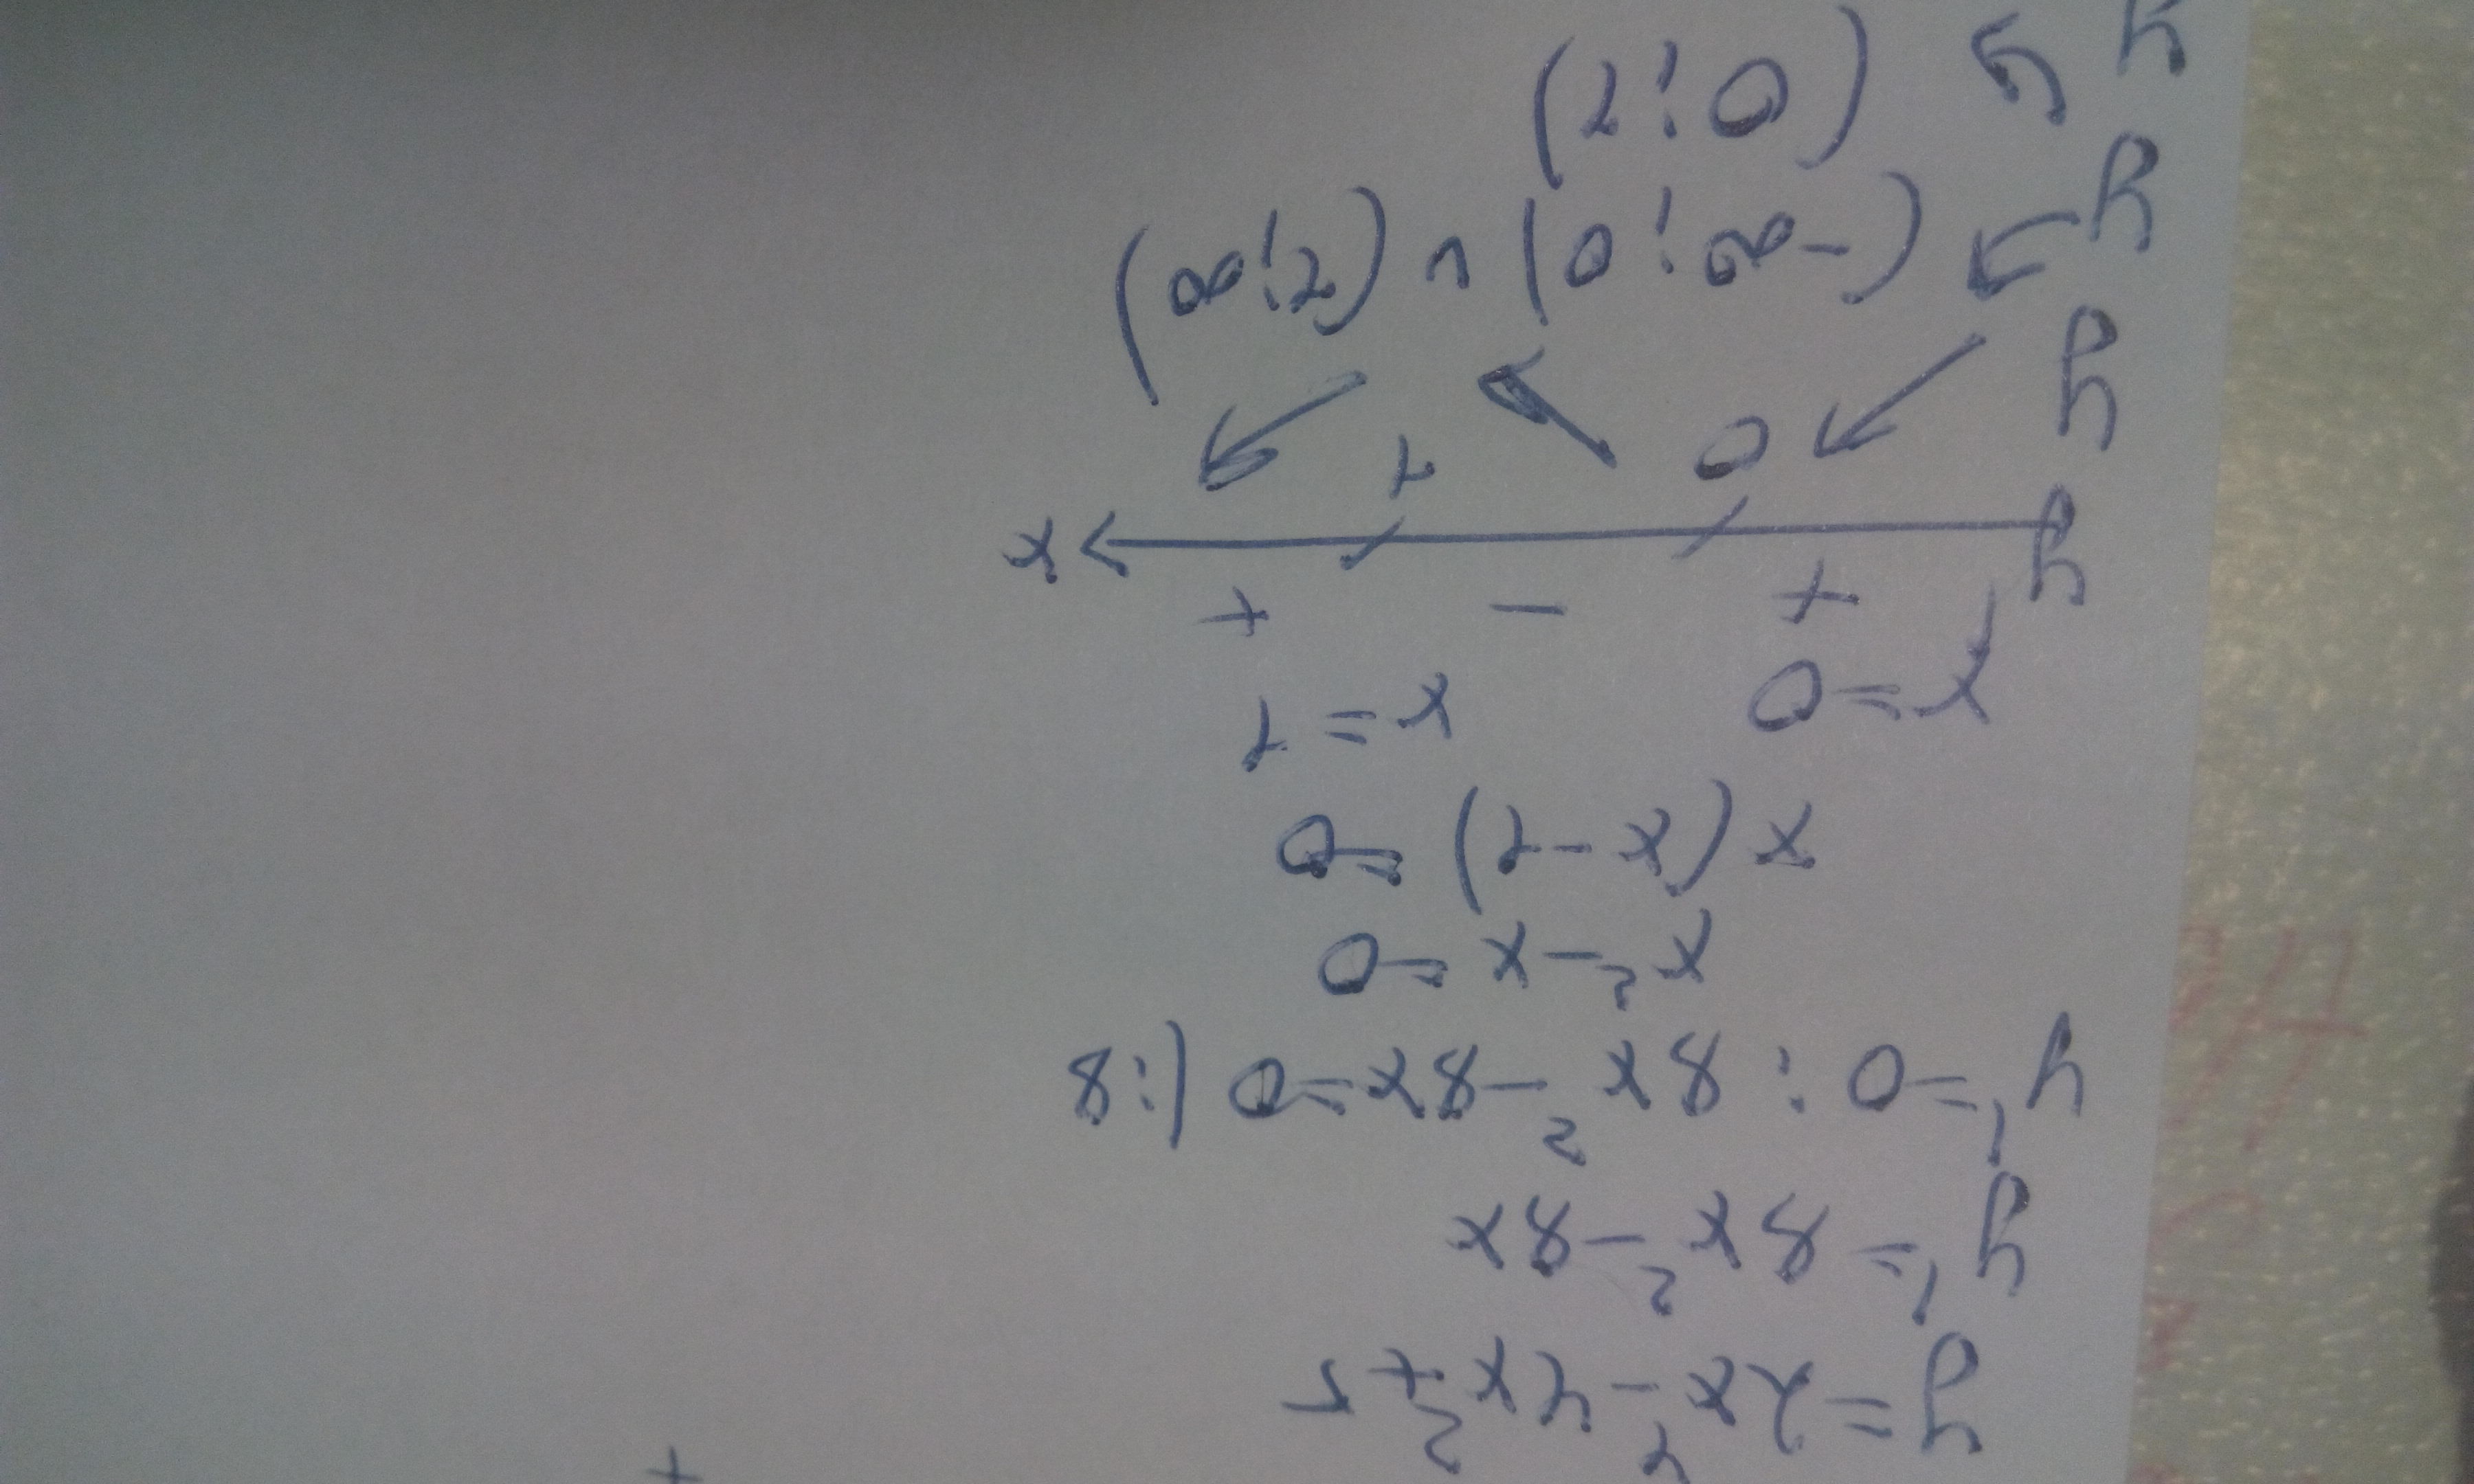 y=2x⁴-4x²+5
y'=8x²-8x
y'=0: 8x²-8x=0 |:8
x²-x=0
x(x-1)=0
x=0 x=1
+ - +
y x
y 0 1
y (-∞;0)∪(1;∞)
y (0;1)